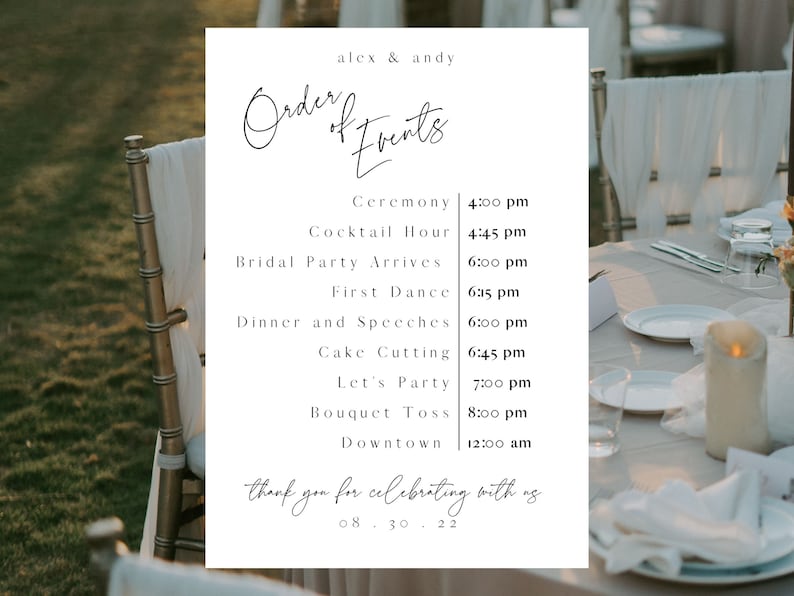 alex & andy
Order
of
Events
Ceremony 4:00 pm
Cocktail Hour 4:45 pm
Bridal Party Arrives 6:00 pm
First Dance 6:15 pm
Dinner and Speeches 6:00 pm
Cake Cutting 6:45 pm
Let's Party 7:00 pm
Bouquet Toss 8:00 pm
Downtown 12:00 am
thank you for celebrating with us
08 . 30 . 22